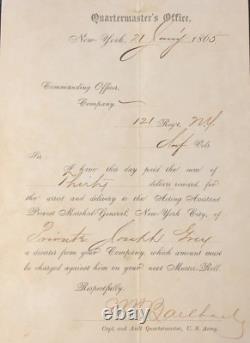 Quartermaster's Office,
New York, 21 July 1865
Commanding Officer,
Company —
121 Reg't, N.Y.
Inf Vols
Sir:
I have this day paid the sum of
Thirty dollars reward for
the arrest and delivery to the Acting Assistant
Provost Marshal General, New York City, of
Private Joseph Grey
a deserter from your Company, which amount must
be charged against him on your next Muster Roll.
Respectfully,
Capt. and Ass't Quartermaster, U. S. Army.
worthpoint